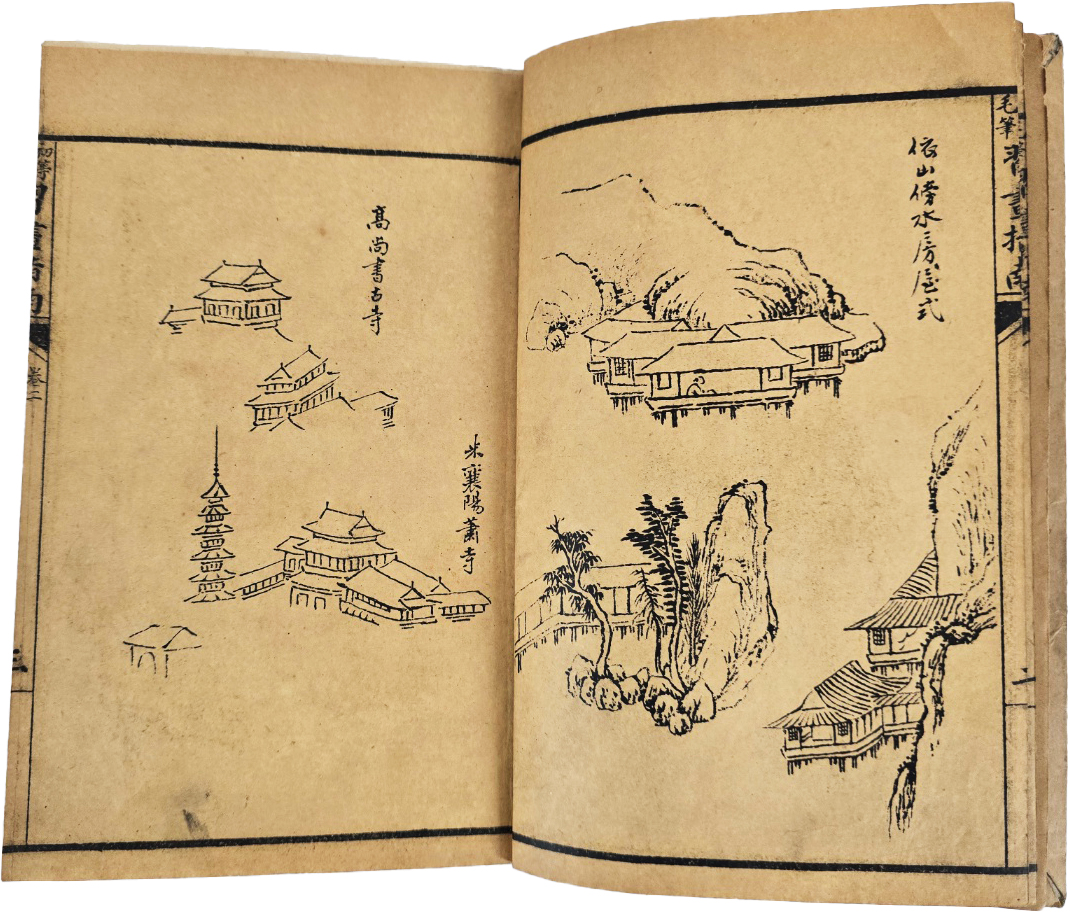 毛筆習畫指南
依山傍水房屋式
高尚書古寺
米襄陽蕭寺
卷二
三